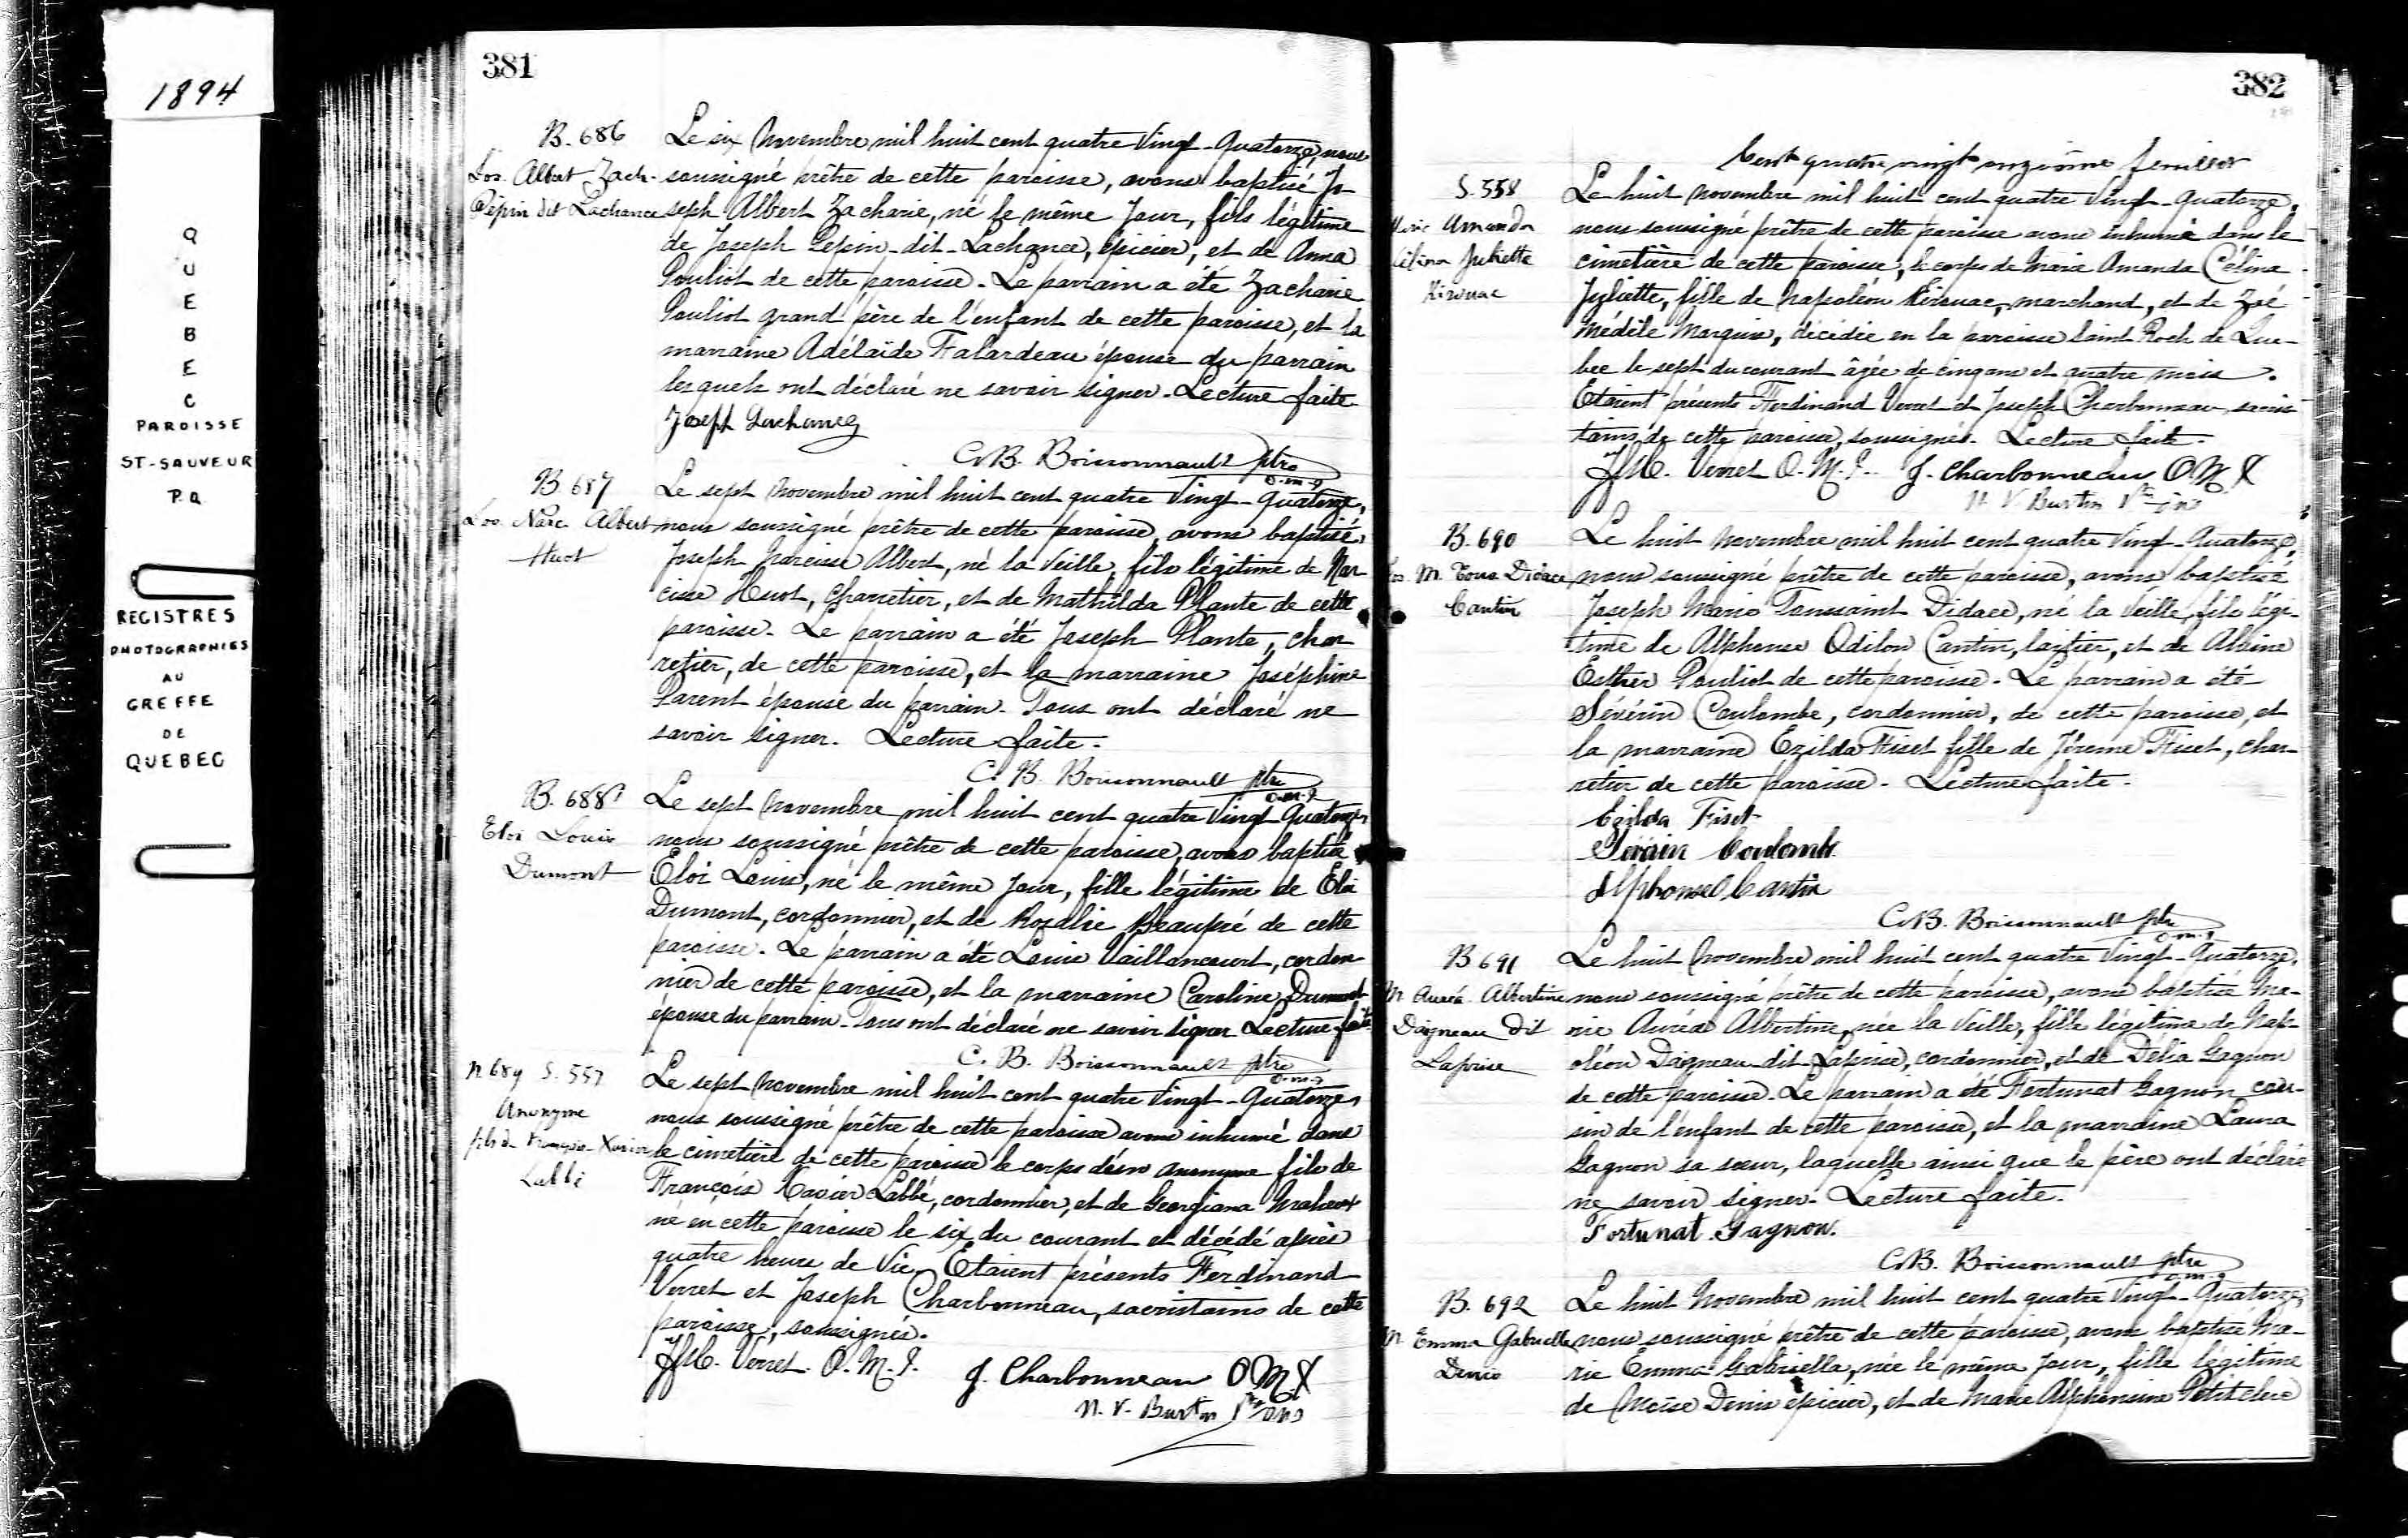 1894
QUEBEC
PAROISSE
ST-SAUVEUR
P.Q
REGISTRES
PHOTOGRAPHIES
AU
GREFFE
DE
QUEBEC
381
B. 686
Jos. Albert Zach.
Pépin dit Lachance
Le six Novembre mil huit cent quatre Vingt-Quatorze, nous
soussigné prêtre de cette paroisse, avons baptisé Jo-
seph Albert Zacharie, né le même Jour, fils légitime
de Joseph Pepin-dit-Lachance, épicier, et de Anna
Pouliot de cette paroisse. Le parrain a été Zacharie
Pouliot grand père de l'enfant de cette paroisse, et la
marraine Adélaïde Falardeau épouse du parrain
lesquels ont déclaré ne savoir signer. Lecture faite
Joseph Lachance
C.B. Boissonnault ptre
o.m.i
B. 687
Jos. Narc. Albert
Huot
Le sept Novembre mil huit cent quatre Vingt-Quatorze,
nous soussigné prêtre de cette paroisse, avons baptisé,
Joseph Narcisse Albert, né la Veille, fils légitime de Nar
cisse Huot, Charretier, et de Mathilda Plante de cette
paroisse. Le parrain a été Joseph Plante, char
retier, de cette paroisse, et la marraine Joséphine
Parent épouse du parrain. Tous ont déclaré ne
savoir signer. Lecture faite.
C. B. Boissonnault ptre
o.m.i
B. 688
Eloi Louis
Dumont
Le sept Novembre mil huit cent quatre Vingt Quatorze,
nous soussigné prêtre de cette paroisse, avons baptisé
Eloi Louis, né le même Jour, fille légitime de Eloi
Dumont, cordonnier, et de Rozalie Beaupré de cette
paroisse. Le parrain a été Louis Vaillancourt, cordon
nier de cette paroisse, et la marraine Caroline Dumont
épouse du parrain. Tous ont déclaré ne savoir signer Lecture faite
C. B. Boissonnault ptre
o.m.i
N 689 S. 557
Anonyme
fils de François-Xavier
Labbé
Le sept Novembre mil huit cent quatre Vingt-Quatorze,
nous soussigné prêtre de cette paroisse avons inhumé dans
le cimetière de cette paroisse le corps d'un anonyme fils de
François Xavier Labbé, cordonnier, et de Georgiana Maheux
né en cette paroisse le six du courant et décédé après
quatre heures de Vie. Etaient présents Ferdinand
Verret et Joseph Charbonneau, sacristains de cette
paroisse, soussignés.
Verret. O.M.I. J. Charbonneau OMI
N. V. Burtin Ptre omi
382
Cent quatre vingt onzième feuillet
S. 558
Marie Amanda
Célina Juliette
Kirouac
Le huit Novembre mil huit cent quatre Vingt-Quatorze,
nous soussigné prêtre de cette paroisse avons inhumé dans le
cimetière de cette paroisse, le corps de Marie Amanda Célina
Juliette, fille de Napoléon Kirouac, marchand, et de Zoé
Médile Marquis, décédée en la paroisse Saint Roch de Qué-
bec le sept du courant âgée de cinq ans et quatre mois.
Etaient présents Ferdinand Verret et Joseph Charbonneau, sacris
tains de cette paroisse, soussignés. Lecture faite.
Verret O.M.I. J. Charbonneau O.M.I
N. V. Burtin Ptre omi
B. 690
Jos. M. Tous. Didace
Cantin
Le huit Novembre mil huit cent quatre Vingt-Quatorze,
nous soussigné prêtre de cette paroisse, avons baptisé
Joseph Marie Toussaint Didace, né la Veille, fils légi-
time de Alphonse Odilon Cantin, laitier, et de Albine
Esther Pouliot de cette paroisse. Le parrain a été
Séverin Coulombe, cordonnier, de cette paroisse, et
la marraine Ezilda Fiset fille de Jéreme Fiset, char-
retier de cette paroisse. Lecture faite.
Ezilda Fiset
Séverin Coulombe
Alphonse O Cantin
C.B. Boissonnault ptre
o.m.i
B 691
M. Auréa Albertine
Daigneau dit
Laprise
Le huit Novembre mil huit cent quatre Vingt-Quatorze,
nous soussigné prêtre de cette paroisse, avons baptisé Ma-
rie Auréa Albertine, née la Veille, fille légitime de Nap-
oléon Daigneau-dit-Laprise, cordonnier, et de Délia Gagnon
de cette paroisse. Le parrain a été Fortunat Gagnon cou-
sin de l'enfant de cette paroisse, et la marraine Laura
Gagnon sa soeur, laquelle ainsi que le père ont déclaré
ne savoir signer. Lecture faite.
Fortunat Gagnon.
C.B. Boissonnault ptre
o.m.i
B. 692
M. Emma Gabriella
Denis
Le huit Novembre mil huit cent quatre Vingt-Quatorze,
nous soussigné prêtre de cette paroisse, avons baptisé Ma-
rie Emma Gabriella, née le même Jour, fille légitime
de Moïse Denis épicier, et de Marie Alphonsine Petitclerc